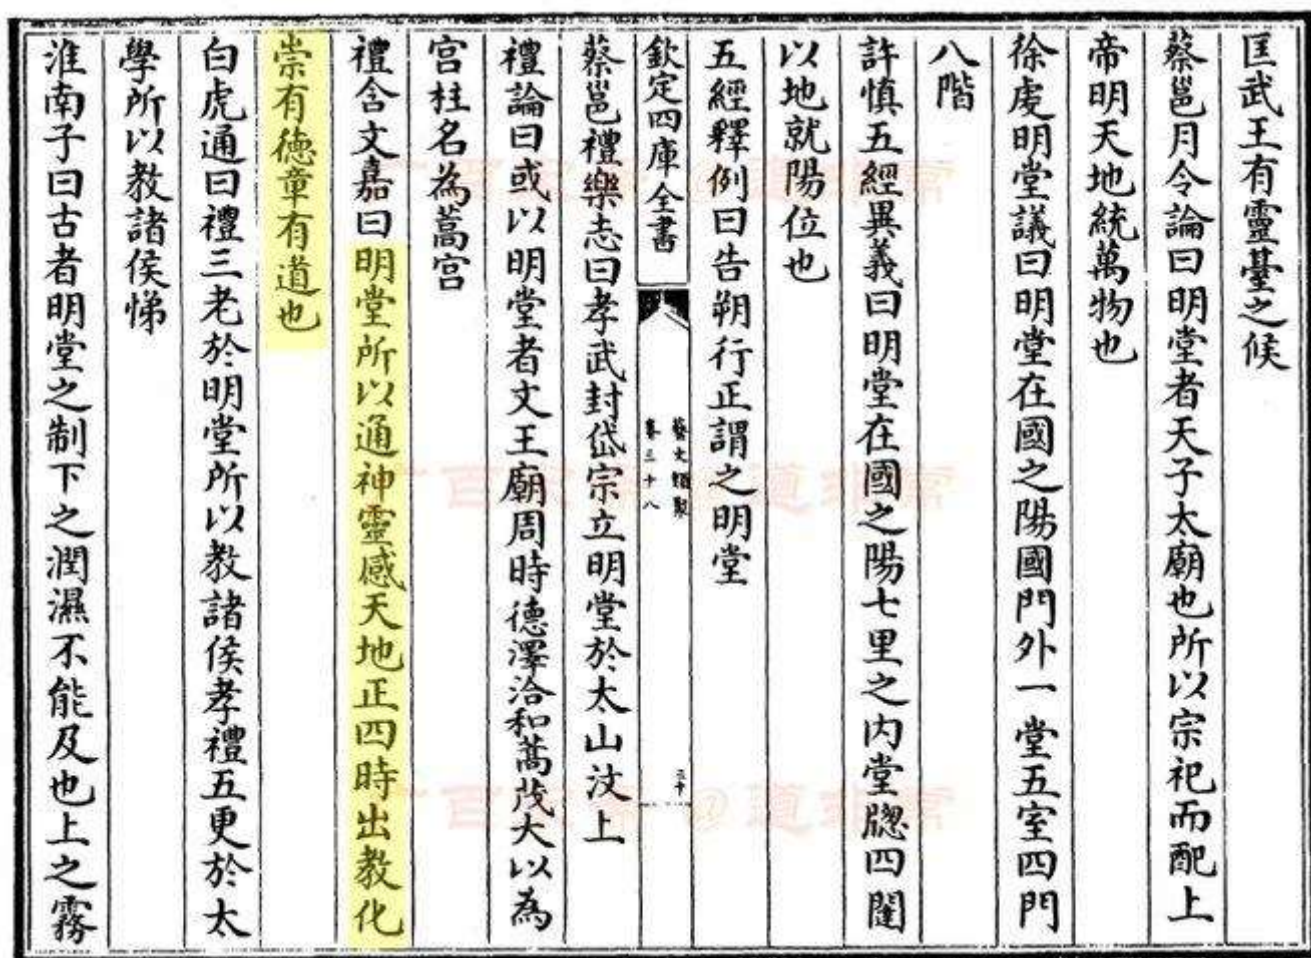 匡武王有靈臺之候
蔡邕月令論曰明堂者天子太廟也所以宗祀而配上
帝明天地統萬物也
徐虔明堂議曰明堂在國之陽國門外一堂五室四門
八階
許慎五經異義曰明堂在國之陽七里之内堂牕四闥
以地就陽位也
五經釋例曰告朔行正謂之明堂
欽定四庫全書
藝文類聚
卷三十八
三十
蔡邕禮樂志曰孝武封岱宗立明堂於太山汶上
禮論曰或以明堂者文王廟周時德澤洽和蒿茂大以為
宮柱名為蒿宮
禮含文嘉曰明堂所以通神靈感天地正四時出教化
崇有德章有道也
白虎通曰禮三老於明堂所以教諸侯孝禮五更於太
學所以教諸侯悌
淮南子曰古者明堂之制下之潤濕不能及也上之霧